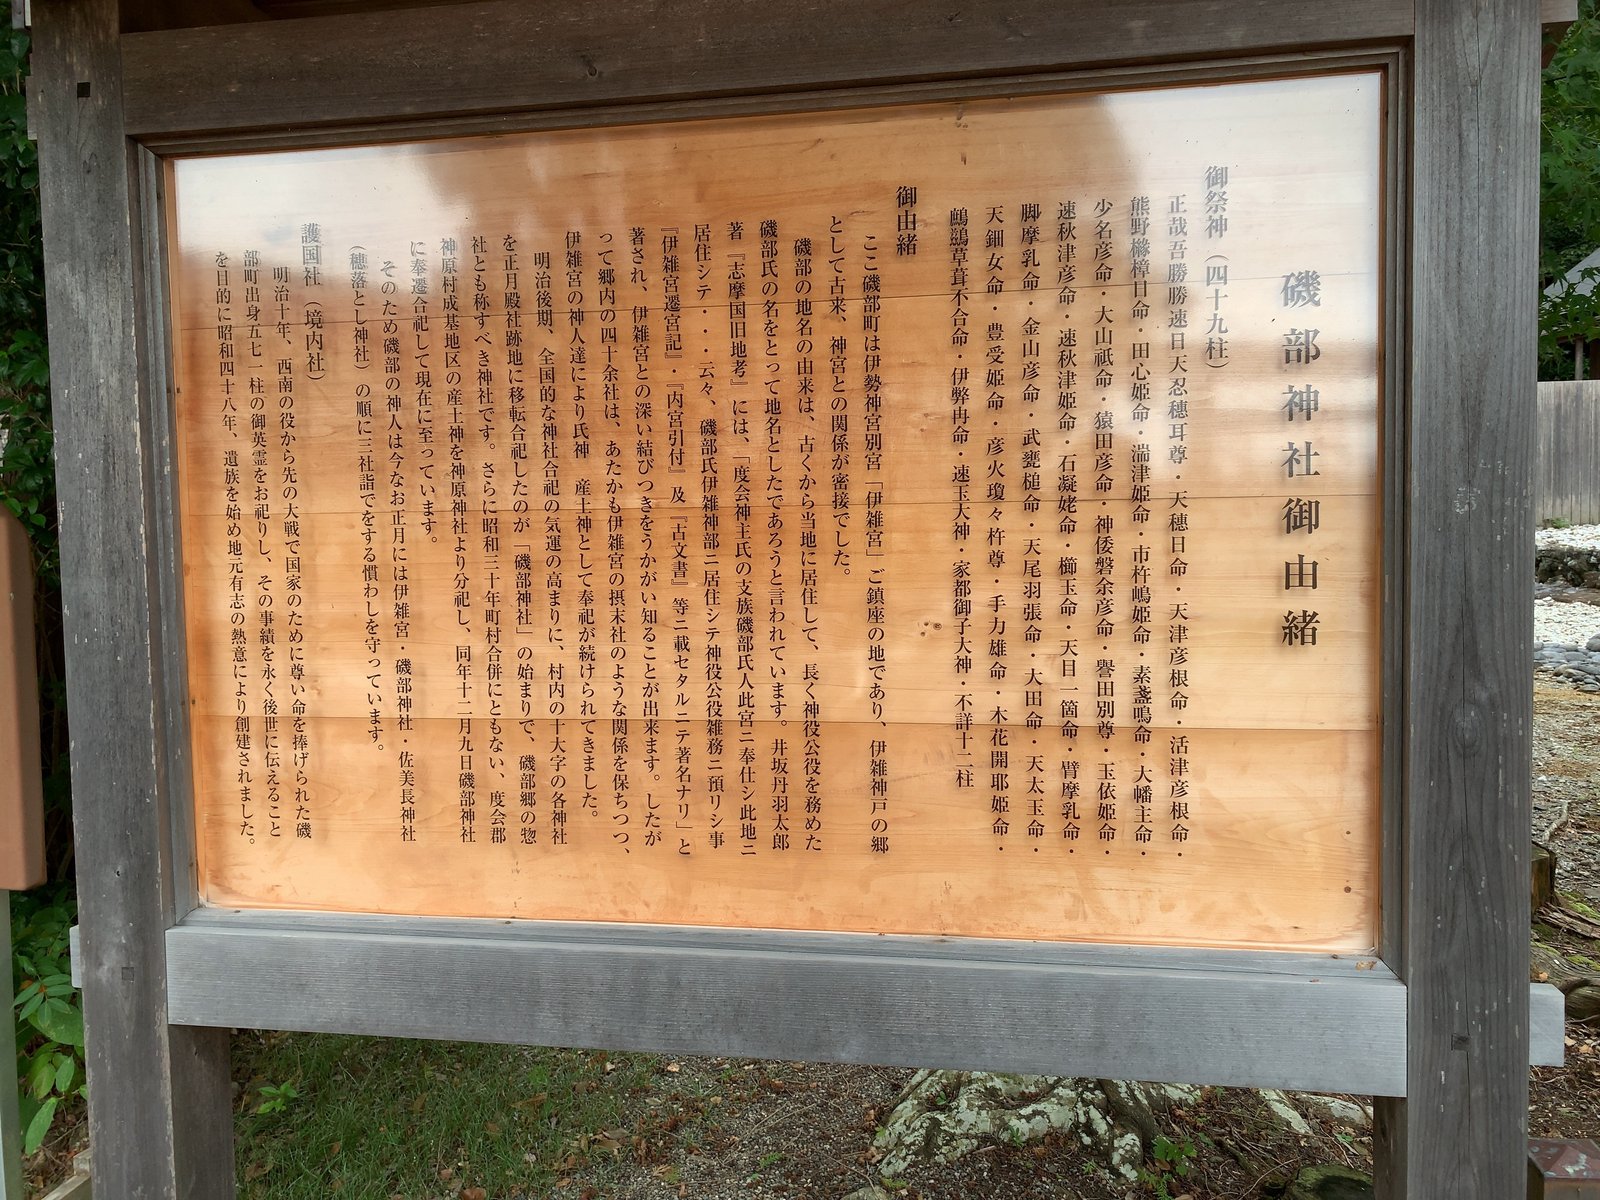 磯部神社御由緒
御祭神(四十九柱)
正哉吾勝勝速日天忍穗耳尊・天穂日命・天津彦根命・活津彦根命・
熊野櫲樟日命・田心姫命・湍津姫命・市杵嶋姫命・素盞鳴命・大幡主命・
少名彦命・大山祗命・猿田彦命・神倭磐余彦命・譽田別尊・玉依姫命・
速秋津彦命・速秋津姫命・石凝姥命・櫛玉命・天目一箇命・臂摩乳命・
脚摩乳命・金山彦命・武甕槌命・天尾羽張命・大田命・天太玉命・
天鈿女命・豊受姫命・彦火瓊々杵尊・手力雄命・木花開耶姫命・
鸕鷀草葺不合命・伊弊冉命・速玉大神・家都御子大神・不詳十二柱
御由緒
ここ磯部町は伊勢神宮別宮「伊雑宮」ご鎮座の地であり、伊雑神戸の郷
として古来、神宮との関係が密接でした。
磯部の地名の由来は、古くから当地に居住して、長く神役公役を務めた
磯部氏の名をとって地名としたであろうと言われています。井坂丹羽太郎
著『志摩国旧地考』には、「度会神主氏の支族磯部氏人此宮ニ奉仕シ此地ニ
居住シテ・・・云々、磯部氏伊雑神部ニ居住シテ神役公役雑務ニ預リシ事
『伊雑宮遷宮記』・『内宮引付』及『古文書』等ニ載セタルニテ著名ナリ」と
著され、伊雑宮との深い結びつきをうかがい知ることが出来ます。したが
って郷内の四十余社は、あたかも伊雑宮の摂末社のような関係を保ちつつ、
伊雑宮の神人達により氏神 産土神として奉祀が続けられてきました。
明治後期、全国的な神社合祀の気運の高まりに、村内の十大字の各神社
を正月殿社跡地に移転合祀したのが「磯部神社」の始まりで、磯部郷の惣
社とも称すべき神社です。さらに昭和三十年町村合併にともない、度会郡
神原村成基地区の産土神を神原神社より分祀し、同年十二月九日磯部神社
に奉遷合祀して現在に至っています。
そのため磯部の神人は今なお正月には伊雑宮・磯部神社・佐美長神社
(穂落とし神社)の順に三社詣でをする慣わしを守っています。
護国社(境内社)
明治十年、西南の役から先の大戦で国家のために尊い命を捧げられた磯
部町出身五七一柱の御英霊をお祀りし、その事績を永く後世に伝えること
を目的に昭和四十八年、遺族を始め地元有志の熱意により創建されました。